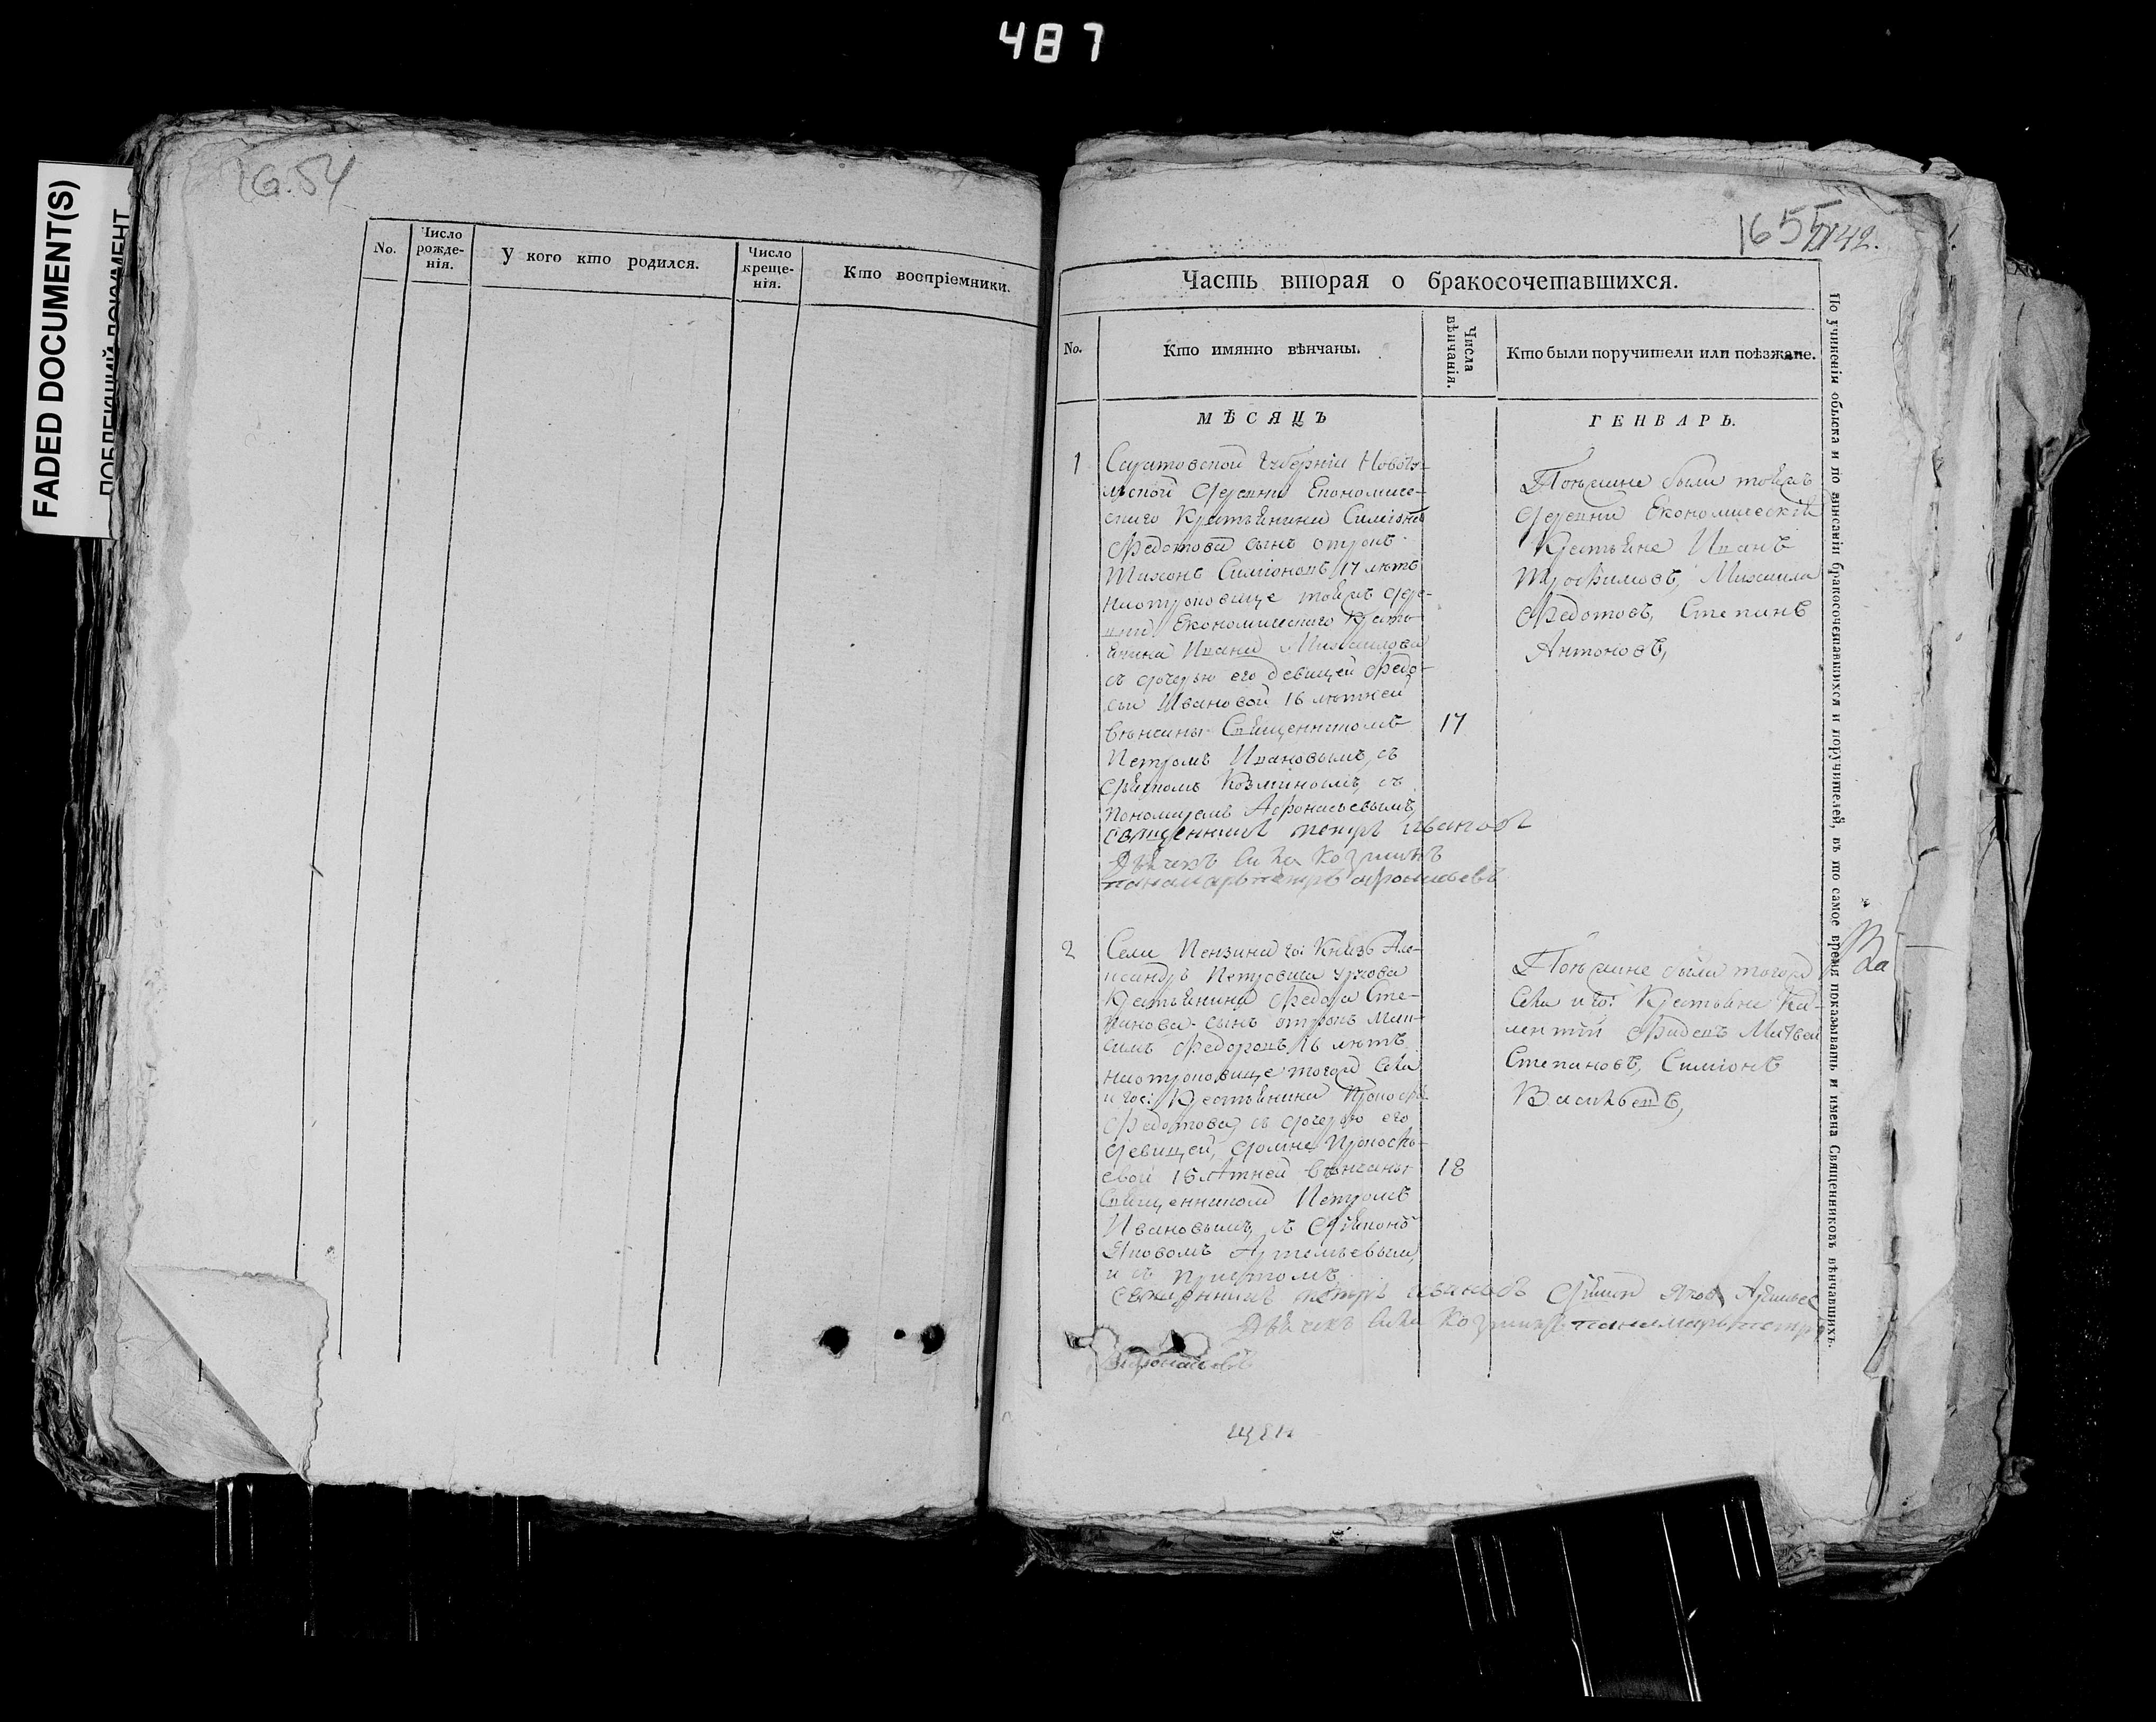 487
FADED DOCUMENT(S)
16.54
No.
Число рожде-нія.
У кого кто родился.
Число креще-нія.
Кто воспріемники.
165
42.
Часть вторая о бракосочетавшихся.
No.
Кто имянно вѣнчаны.
Числа вѣнчанія.
Кто были поручители или поѣзжане.
МѢСЯЦЪ
ГЕНВАРЬ.
1
Саратовской Губерніи
деревни Економиче-
скаго Крестьянина Симіона
Федотова сынъ отрокъ
Тихонъ Симіоновъ 17 лѣтъ
поотроковице тояжъ дере-
вни Економическаго Кресть
янина Ивана Михаилова
съ дочерью его девицей Федо-
сьи Ивановой 16 лѣтней
венчаны Священникомъ
17
Петромъ Ивановымъ, съ
дьячкомъ Козминымъ, съ
пономаремъ Афонасьевымъ,
священникъ петръ ивановъ
Дьячекъ Козминъ
панамарь петръ афонасьевъ
Поѣзжане были тояжъ
деревни Економическія
Крестьяне Иванъ
Трофимовъ, Михаила
Федотовъ, Степанъ
Антоновъ,
2
Села Пензина Князь Але-
ксандръ Петровича
Крестьянина Федора Сте-
панова сынъ отрокъ Мак-
симъ Федоровъ 16 лѣтъ
поотроковице тогожъ Села
и гос: Крестьянина
Федотова съ дочерью его
девицей,
евой 16 лѣтней венчаны
18
Священникомъ Петромъ
Ивановымъ, съ Діякономъ
Яковомъ Артемьевымъ,
и съ Причтомъ
священникъ петръ ивановъ
Дьячекъ Козминъ панамарь петръ
афонасьевъ
Поѣзжане были тогожъ
Села и го: Крестьяне
Матвей
Степановъ, Симіонъ
Васильевъ,
По учиненіи обыска и по вписаніи бракосочетавшихся и поручителей, въ то самое время показывать и имена Священниковъ вѣнчавшихъ.